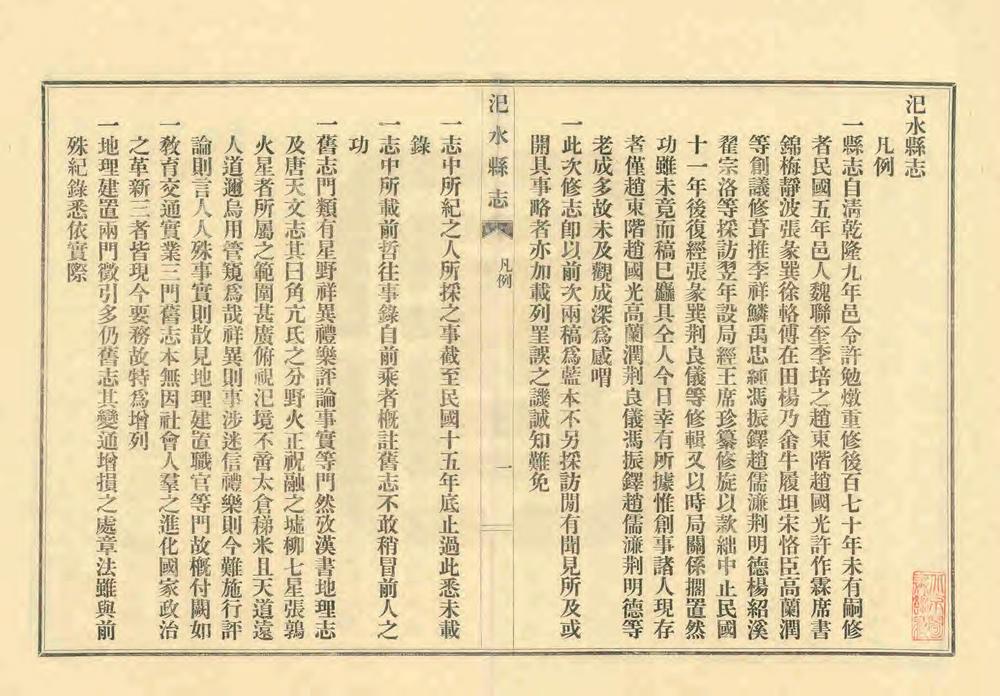 汜水縣志
凡例
一縣志自淸乾隆九年邑令許勉燉重修後百七十年未有嗣修
者民國五年邑人魏聯奎李培之趙東階趙國光許作霖席書
錦梅靜波張彖巽徐輅傅在田楊乃畬牛履坦宋恪臣高蘭潤
等創議修葺推李祥鱗禹忠緬馮振鐸趙儒濂荆明德楊紹溪
翟宗洛等採訪翌年設局經王席珍纂修旋以款絀中止民國
十一年後復經張彖巽荆良儀等修輯又以時局關係擱置然
功雖未竟而稿已麤具仝人今日幸有所據惟創事諸人現存
者僅趙東階趙國光高蘭潤荆良儀馮振鐸趙儒濂荆明德等
老成多故未及觀成深爲感喟
一此次修志卽以前次兩稿爲藍本不另採訪閒有聞見所及或
開具事略者亦加載列罣誤之譏誠知難免
汜水縣志
凡例
一
一志中所紀之人所採之事截至民國十五年底止過此悉未載
錄
一志中所載前哲往事錄自前乘者槪註舊志不敢稍冒前人之
功
一舊志門類有星野祥異禮樂評論事實等門然攷漢書地理志
及唐天文志其曰角亢氐之分野火正祝融之墟柳七星張鶉
火星者所屬之範圍甚廣俯視汜境不啻太倉稊米且天道遠
人道邇烏用管窺爲哉祥異則事涉迷信禮樂則今難施行評
論則言人人殊事實則散見地理建置職官等門故槪付闕如
一敎育交通實業三門舊志本無因社會人羣之進化國家政治
之革新三者皆現今要務故特爲增列
一地理建置兩門徵引多仍舊志其變通增損之處章法雖與前
殊紀錄悉依實際